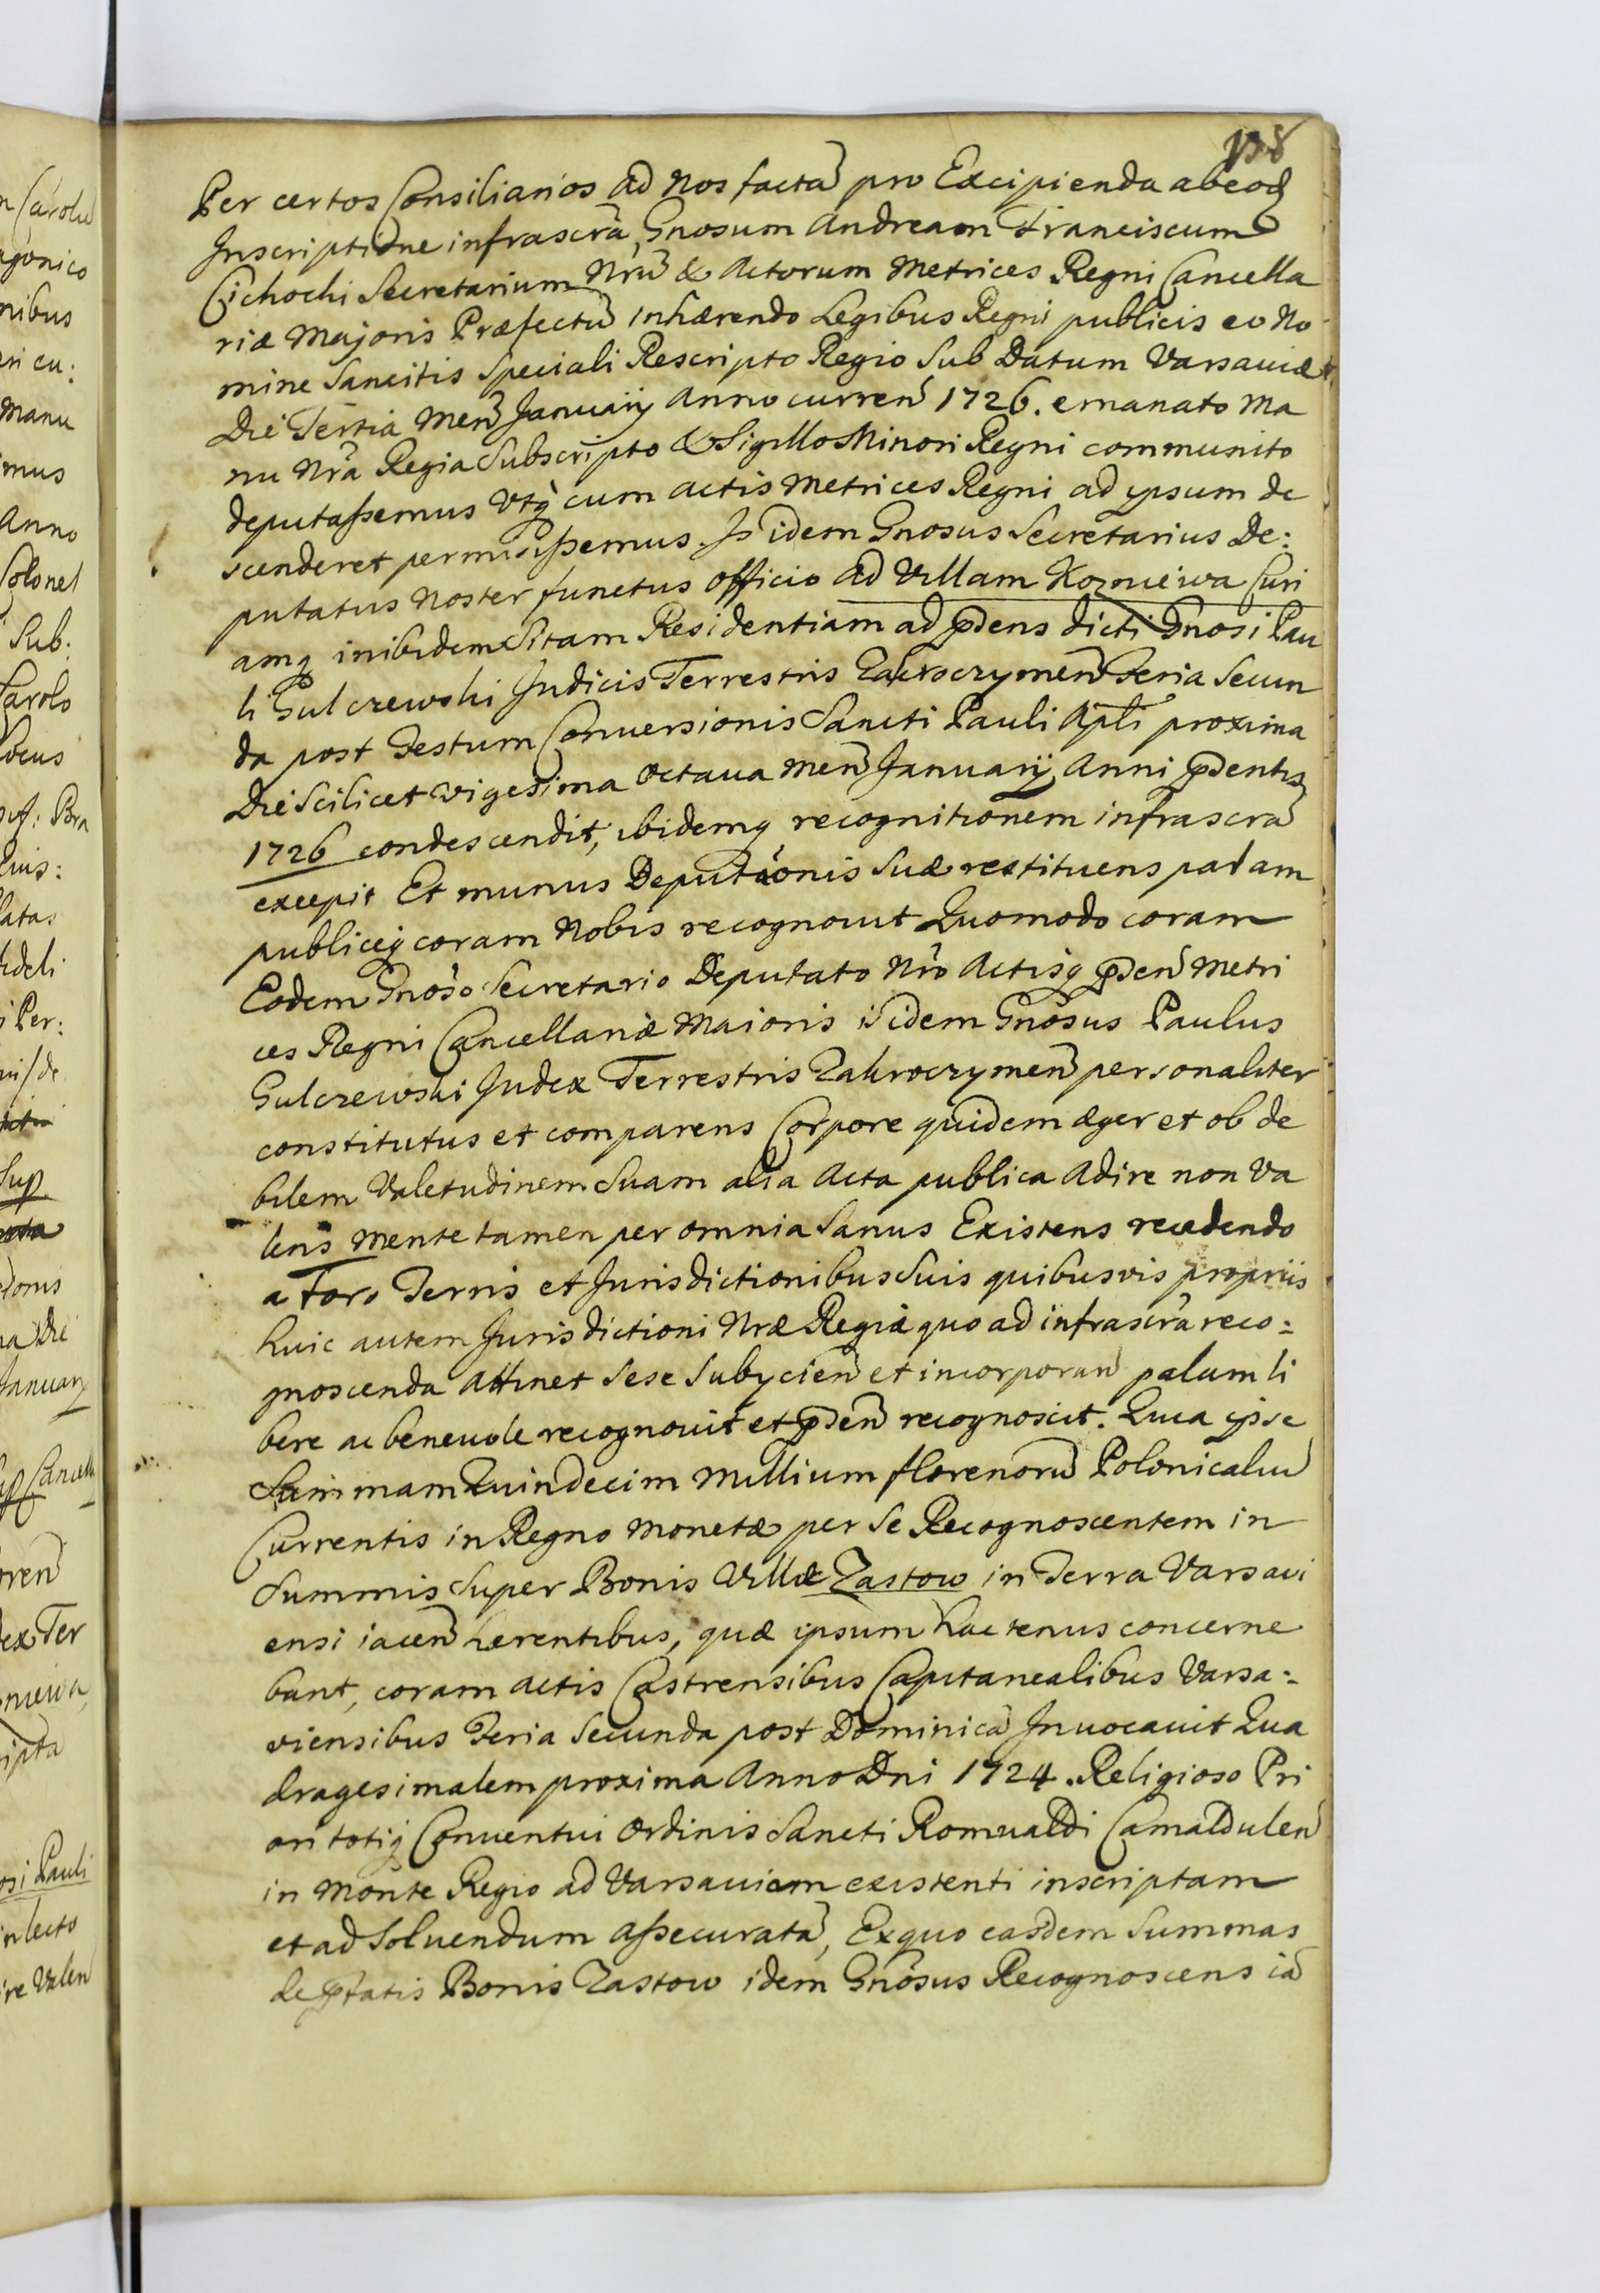 138
Per certos Consiliarios ad Nos factã pro Excipienda ab eod
Inscriptione infrascrã, Gnosum Andream Franciscum
Cichocki Secretarium Nrũ & Actorum Metrices Regni Cancella
riæ Majoris Præfectũ inhærendo Legibus Regni publicis eo No
mine Sancitis Speciali Rescripto Regio Sub Datum Varsaviæ
Die Tertia Men Januarij Anno curren 1726. emanato Ma
nu Nrã Regia Subscripto & Sigillo Minori Regni communito
deputassemus Vtq cum actis Metrices Regni ad ipsum de
scenderet permisissemus. Is idem Gnosus Secretarius De:
putatus Noster functus Officio ad Villam Kozniewa Curi
amq inibidem Sitam Residentiam ad pdens dicti Gnosi Pau
li Gulczewski Judicis Terrestris Zakroczymen Feria Secun
da post Festum Conversionis Sancti Pauli Apli proxima
Die Scilicet vigesima octaua Men Januarij Anni pdentis
1726 condescendit, ibidemq recognitionem infrascrã
excepit Et munus Deputãonis Suæ restituens palam
publiceq coram Nobis recognouit Quomodo coram
Eodem Gnoso Secretario Deputato Nrõ Actisq pden Metri
ces Regni Cancellariæ Maioris is idem Gnosus Paulus
Gulczewski Judex Terrestris Zakroczymen personaliter
constitutus et comparens Corpore quidem æger et ob de
bilem Valetudinem Suam alia Acta publica Adire non Va
lens mente tamen per omnia Sanus Existens recedendo
a Foro Terris et Jurisdictionibus Suis quibusvis propriis
huic autem Jurisdictioni Nræ Regiæ quo ad infrascrã reco:
gnoscenda Attinet Sese Subycien et incorporan palam li
bere ac beneuole recognouit et pden recognoscit. Quia ipse
Summam Quindecim Millium florenorũ Polonicaliũ
Currentis in Regno Monetæ per Se Recognoscentem in
Summis Super Bonis Villæ Zastow in Terra Varsavi
ensi iacen hærentibus, quæ ipsum hactenus concerne
bant, coram actis Castrensibus Capitanealibus Varsa:
viensibus Feria Secunda post Dominicã Inuocauit Qua
dragesimalem proxima Anno Dni 1724. Religioso Pri
ori totiq Conuentui Ordinis Sancti Romualdi Camaldulen
in Monte Regio ad Varsauiam existenti inscriptam
et ad Soluendum assecuratã, Exquo easdem Summas
de pfatis Bonis Zastow idem Gnosus Recognoscens iã